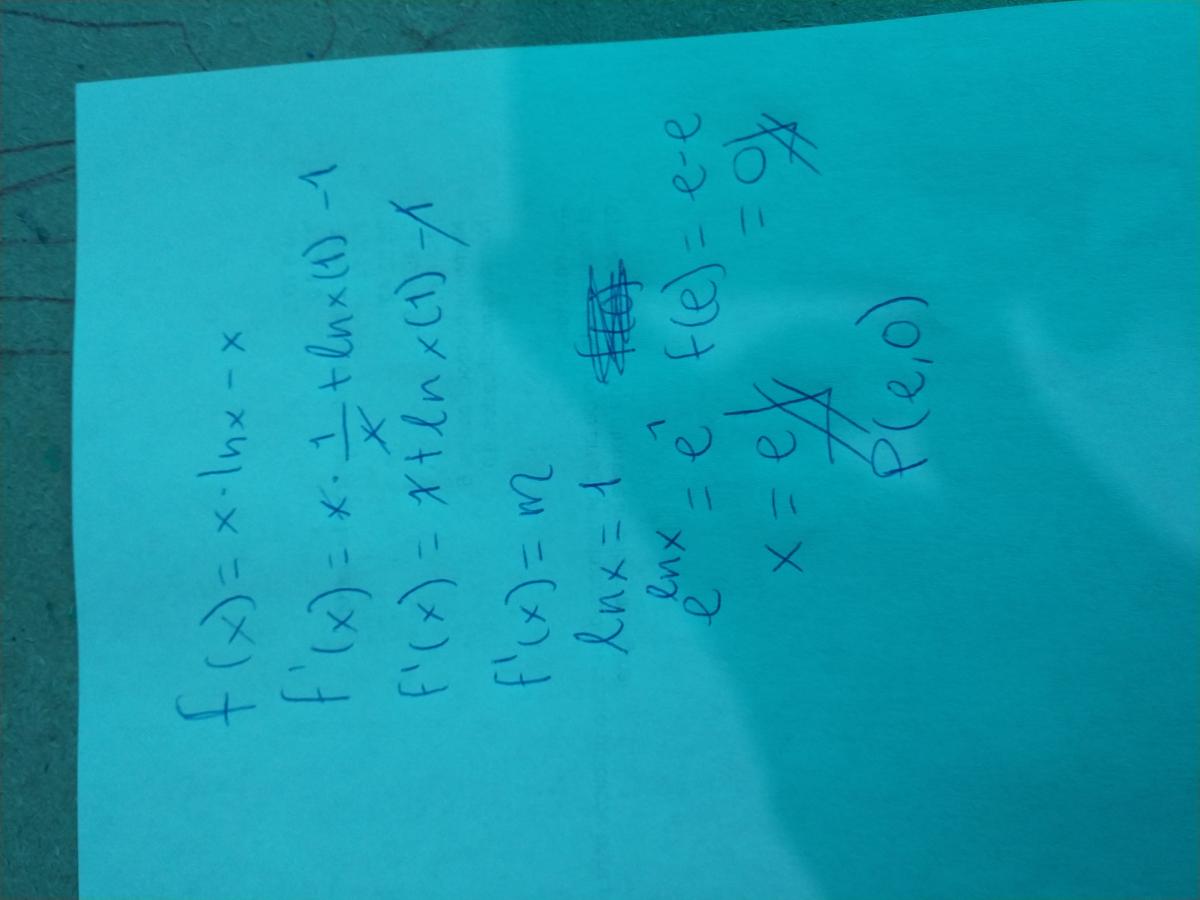 f(x) = x · lnx - x
f'(x) = x · 1/x + lnx(1) - 1
f'(x) = 1 + lnx(1) - 1
f'(x) = m
lnx = 1
e^lnx = e^1 f(e) = e - e
x = e = 0
P(e,0)